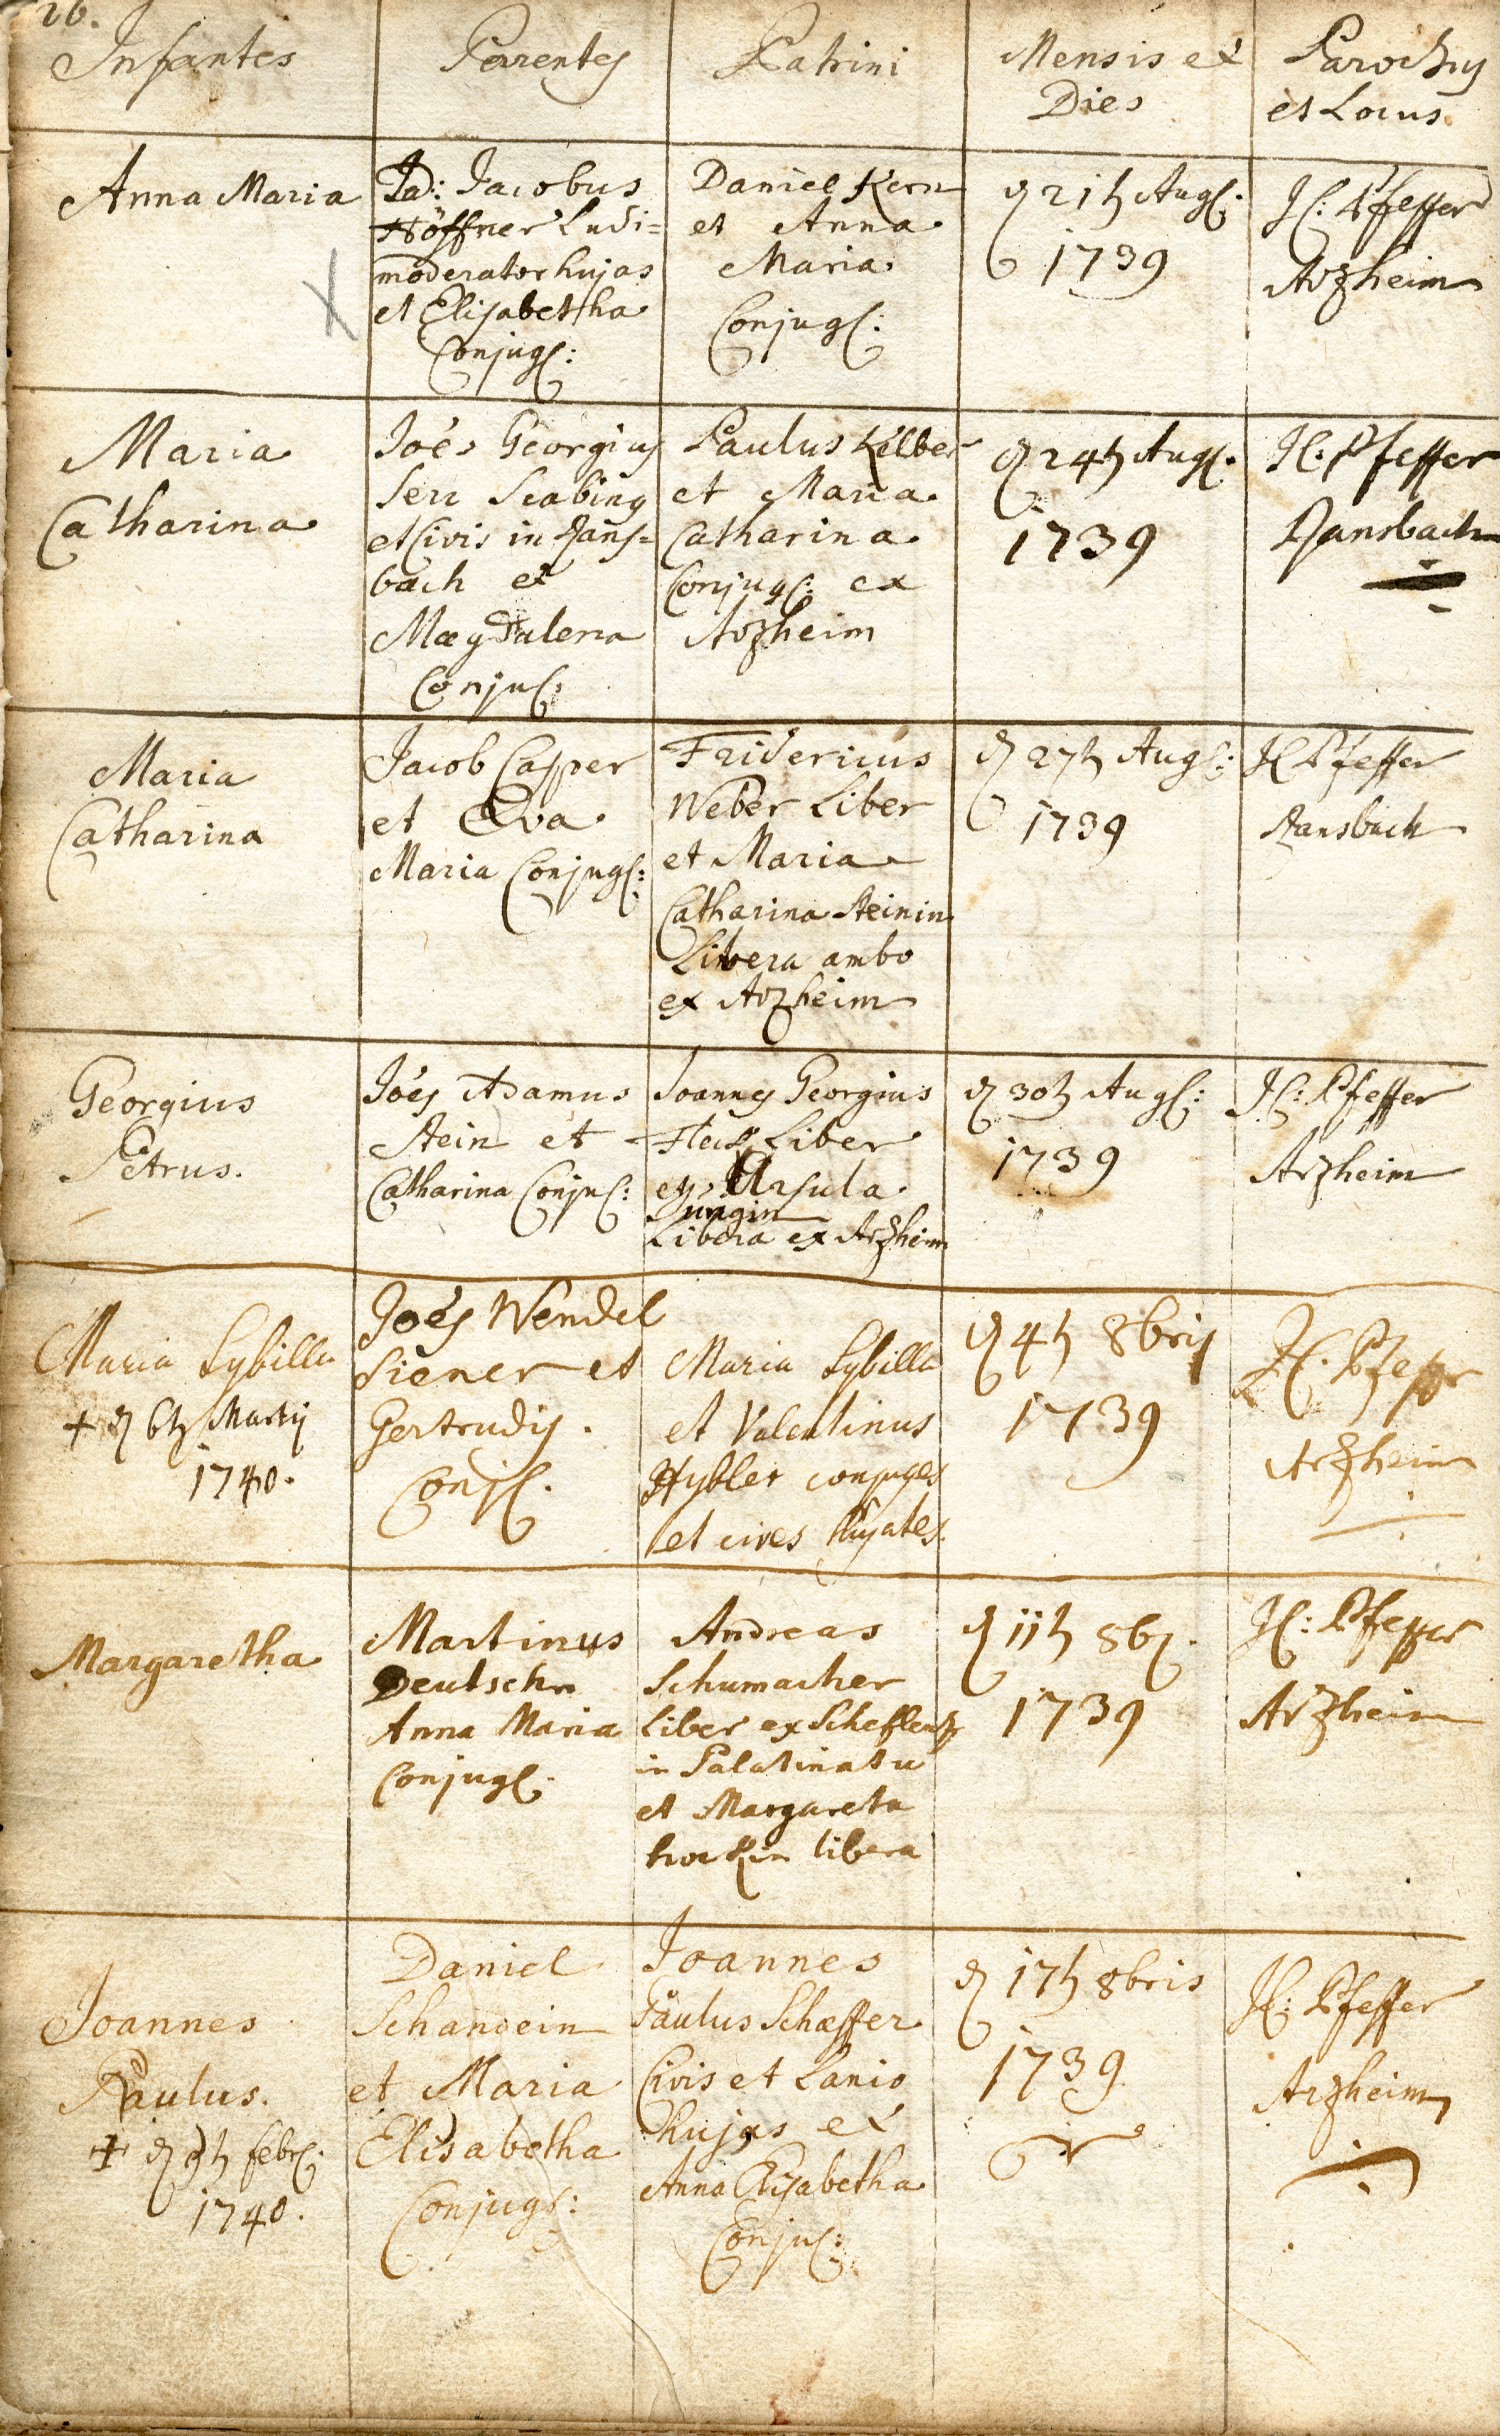 26.
Infantes
Parentes
Patrini
Mensis et
Dies
Parochus
et Locus
Anna Maria
Jacobus
Höffner Ludi=
moderator hujas
et Elisabetha
Conjug:
Daniel Kern
et Anna
Maria
Conjug:
d 21t Aug:
1739
J: Pfeffer
Arzheim
Maria
Catharina
Joés Georgius
Serr Scabinus
et Civis in Rans=
bach et
Magdalena
Conju:
Paulus Kelber
et Maria
Catharina
Conjug: ex
Arzheim
d 24t Aug:
1739
J: Pfeffer
Ransbach
Maria
Catharina
Jacob Casper
et Eva
Maria Conjug:
Fridericus
Weber Liber
et Maria
Catharina Steinin
Libera ambo
ex Arzheim
d 27t Aug:
1739
J Pfeffer
Ransbach
Georgius
Petrus.
Joés Adamus
Stein et
Catharina Conju:
Joannes Georgius
Liber
et Ursula
Jungin
Libera ex Arzheim
d 30t Aug:
1739
J: Pfeffer
Arzheim
Maria Sybilla
+ d 6t Martij
1740.
Joés Wendel
Siener et
Gertrudis.
Conj.
Maria Sybilla
et Valentinus
Hybler conjuges
et cives hujates.
d 4t 8bris
1739
J. Pfeffer
Arzheim
Margaretha
Martinus
Deutsch
Anna Maria
Conjug:
Andreas
Schumacher
Liber ex Scheflenz
in Palatinatu
et Margareta
libera
d 11t 8b.
1739
J: Pfeffer
Arzheim
Joannes
Paulus.
+ d 9t febr:
1740.
Daniel
Schandein
et Maria
Elisabetha
Conjug:
Joannes
Paulus Schæffer
Civis et Lanio
hujas et
Anna Elisabetha
Conju:
d 17t 8bris
1739
J: Pfeffer
Arzheim